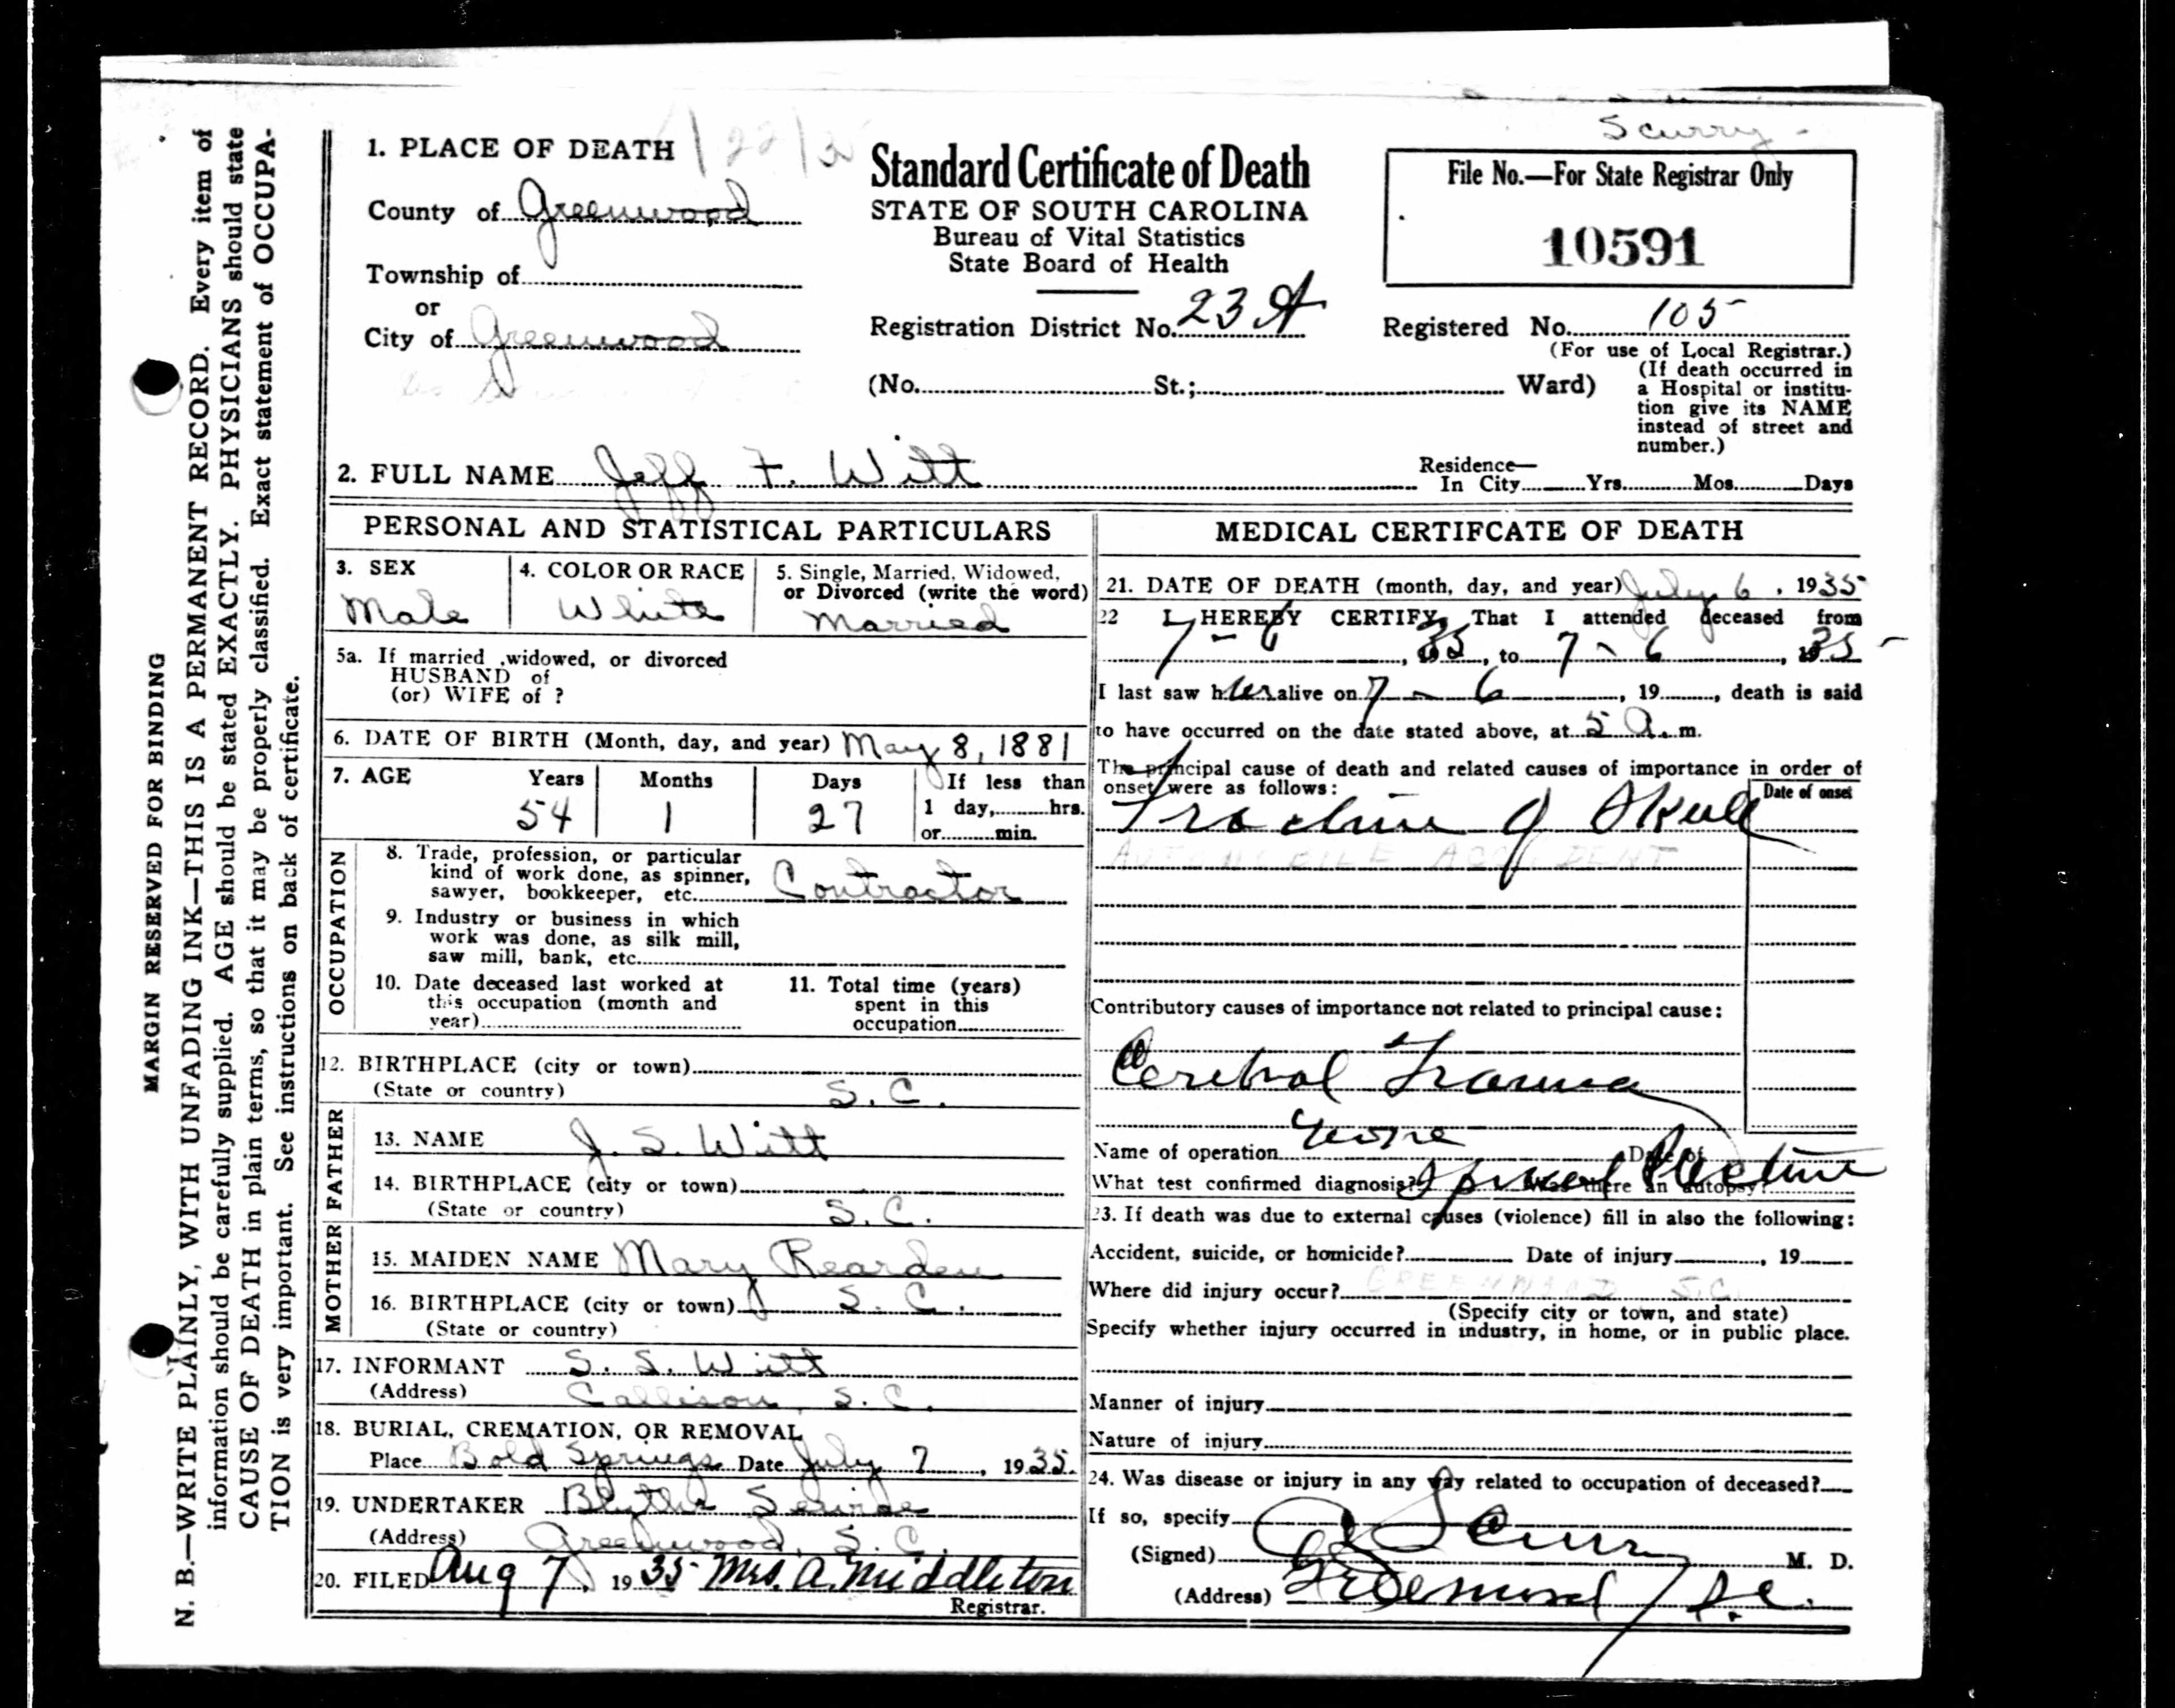 Scurry
1. PLACE OF DEATH
County of Greenwood
Township of
or
City of Greenwood
Standard Certificate of Death
STATE OF SOUTH CAROLINA
Bureau of Vital Statistics
State Board of Health
Registration District No. 23 A
(No. St.; Ward)
File No.—For State Registrar Only
10591
Registered No. 105
(For use of Local Registrar.)
(If death occurred in
a Hospital or institu-
tion give its NAME
instead of street and
number.)
2. FULL NAME Jeff F. Witt
Residence—
In City Yrs. Mos. Days
PERSONAL AND STATISTICAL PARTICULARS
3. SEX
Male
4. COLOR OR RACE
White
5. Single, Married, Widowed,
or Divorced (write the word)
Married
5a. If married ,widowed, or divorced
HUSBAND of
(or) WIFE of ?
6. DATE OF BIRTH (Month, day, and year) May 8, 1881
7. AGE Years Months Days If less than
54 1 27 1 day, hrs.
or min.
OCCUPATION
8. Trade, profession, or particular
kind of work done, as spinner,
sawyer, bookkeeper, etc. Contractor
9. Industry or business in which
work was done, as silk mill,
saw mill, bank, etc.
10. Date deceased last worked at
this occupation (month and
year)
11. Total time (years)
spent in this
occupation
12. BIRTHPLACE (city or town)
(State or country) S. C.
FATHER
13. NAME J. S. Witt
14. BIRTHPLACE (city or town)
(State or country) S. C.
MOTHER
15. MAIDEN NAME Mary Rearden
16. BIRTHPLACE (city or town) S. C.
(State or country)
17. INFORMANT S. S. Witt
(Address) Callison, S. C.
18. BURIAL, CREMATION, OR REMOVAL
Place Bold Springs Date July 7, 1935.
19. UNDERTAKER Blyth
(Address) Greenwood, S. C.
20. FILED Aug 7, 1935 Mrs. A. Middleton
Registrar.
MEDICAL CERTIFCATE OF DEATH
21. DATE OF DEATH (month, day, and year) July 6, 1935
22 I HEREBY CERTIFY, That I attended deceased from
7 - 6, 35, to 7 - 6, 35
I last saw h alive on 7 - 6, 19, death is said
to have occurred on the date stated above, at 5 A. m.
The principal cause of death and related causes of importance in order of
onset were as follows:
Date of onset
Fracture of Skull
AUTOMOBILE ACCIDENT
Contributory causes of importance not related to principal cause:
Cerebral Trauma
Name of operation None Date of
What test confirmed diagnosis? Spinal Puncture Was there an autopsy?
23. If death was due to external causes (violence) fill in also the following:
Accident, suicide, or homicide? Date of injury, 19
Where did injury occur? GREENWOOD S.C.
(Specify city or town, and state)
Specify whether injury occurred in industry, in home, or in public place.
Manner of injury
Nature of injury
24. Was disease or injury in any way related to occupation of deceased?
If so, specify
(Signed) Scurry M. D.
(Address) Greenwood, S.C.
MARGIN RESERVED FOR BINDING
N. B.—WRITE PLAINLY, WITH UNFADING INK—THIS IS A PERMANENT RECORD. Every item of
information should be carefully supplied. AGE should be stated EXACTLY. PHYSICIANS should state
CAUSE OF DEATH in plain terms, so that it may be properly classified. Exact statement of OCCUPA-
TION is very important. See instructions on back of certificate.